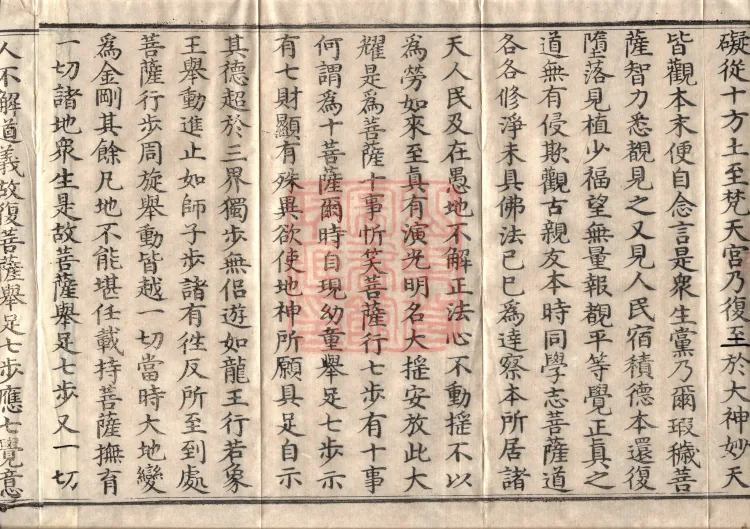 礙從十方土至梵天宮乃復至於大神妙天
皆觀本末便自念言是衆生黨乃爾瑕穢菩
薩智力悉覩見之又見人民宿積德本還復
墮落見植少福望無量報覩平等覺正真之
道無有侵欺觀古親友本時同學志菩薩道
各各修淨未具佛法已已爲達察本所居諸
天人民及在愚地不解正法心不動揺不以
爲勞如來至真有演光明名大揺安放此大
耀是爲菩薩十事忻笑菩薩行七步有十事
何謂爲十菩薩爾時自現幼童舉足七步示
有七財顯有殊異欲使地神所願具足自示
其德超於三界獨步無侶遊如龍王行若象
王舉動進止如師子步諸有徃反所至到處
菩薩行步周旋舉動皆越一切當時大地變
爲金剛其餘凡地不能堪任載持菩薩撫育
一切諸地衆生是故菩薩舉足七步又一切
人不解道義故復菩薩舉足七步應七覺意